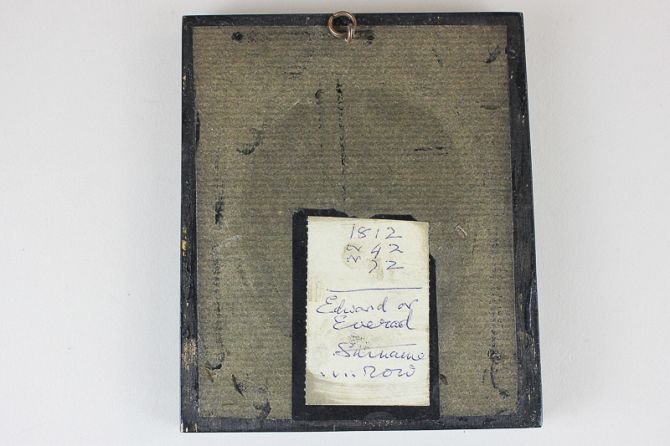 1812
22 42
22
Edward or
Everad
Surname
.... row